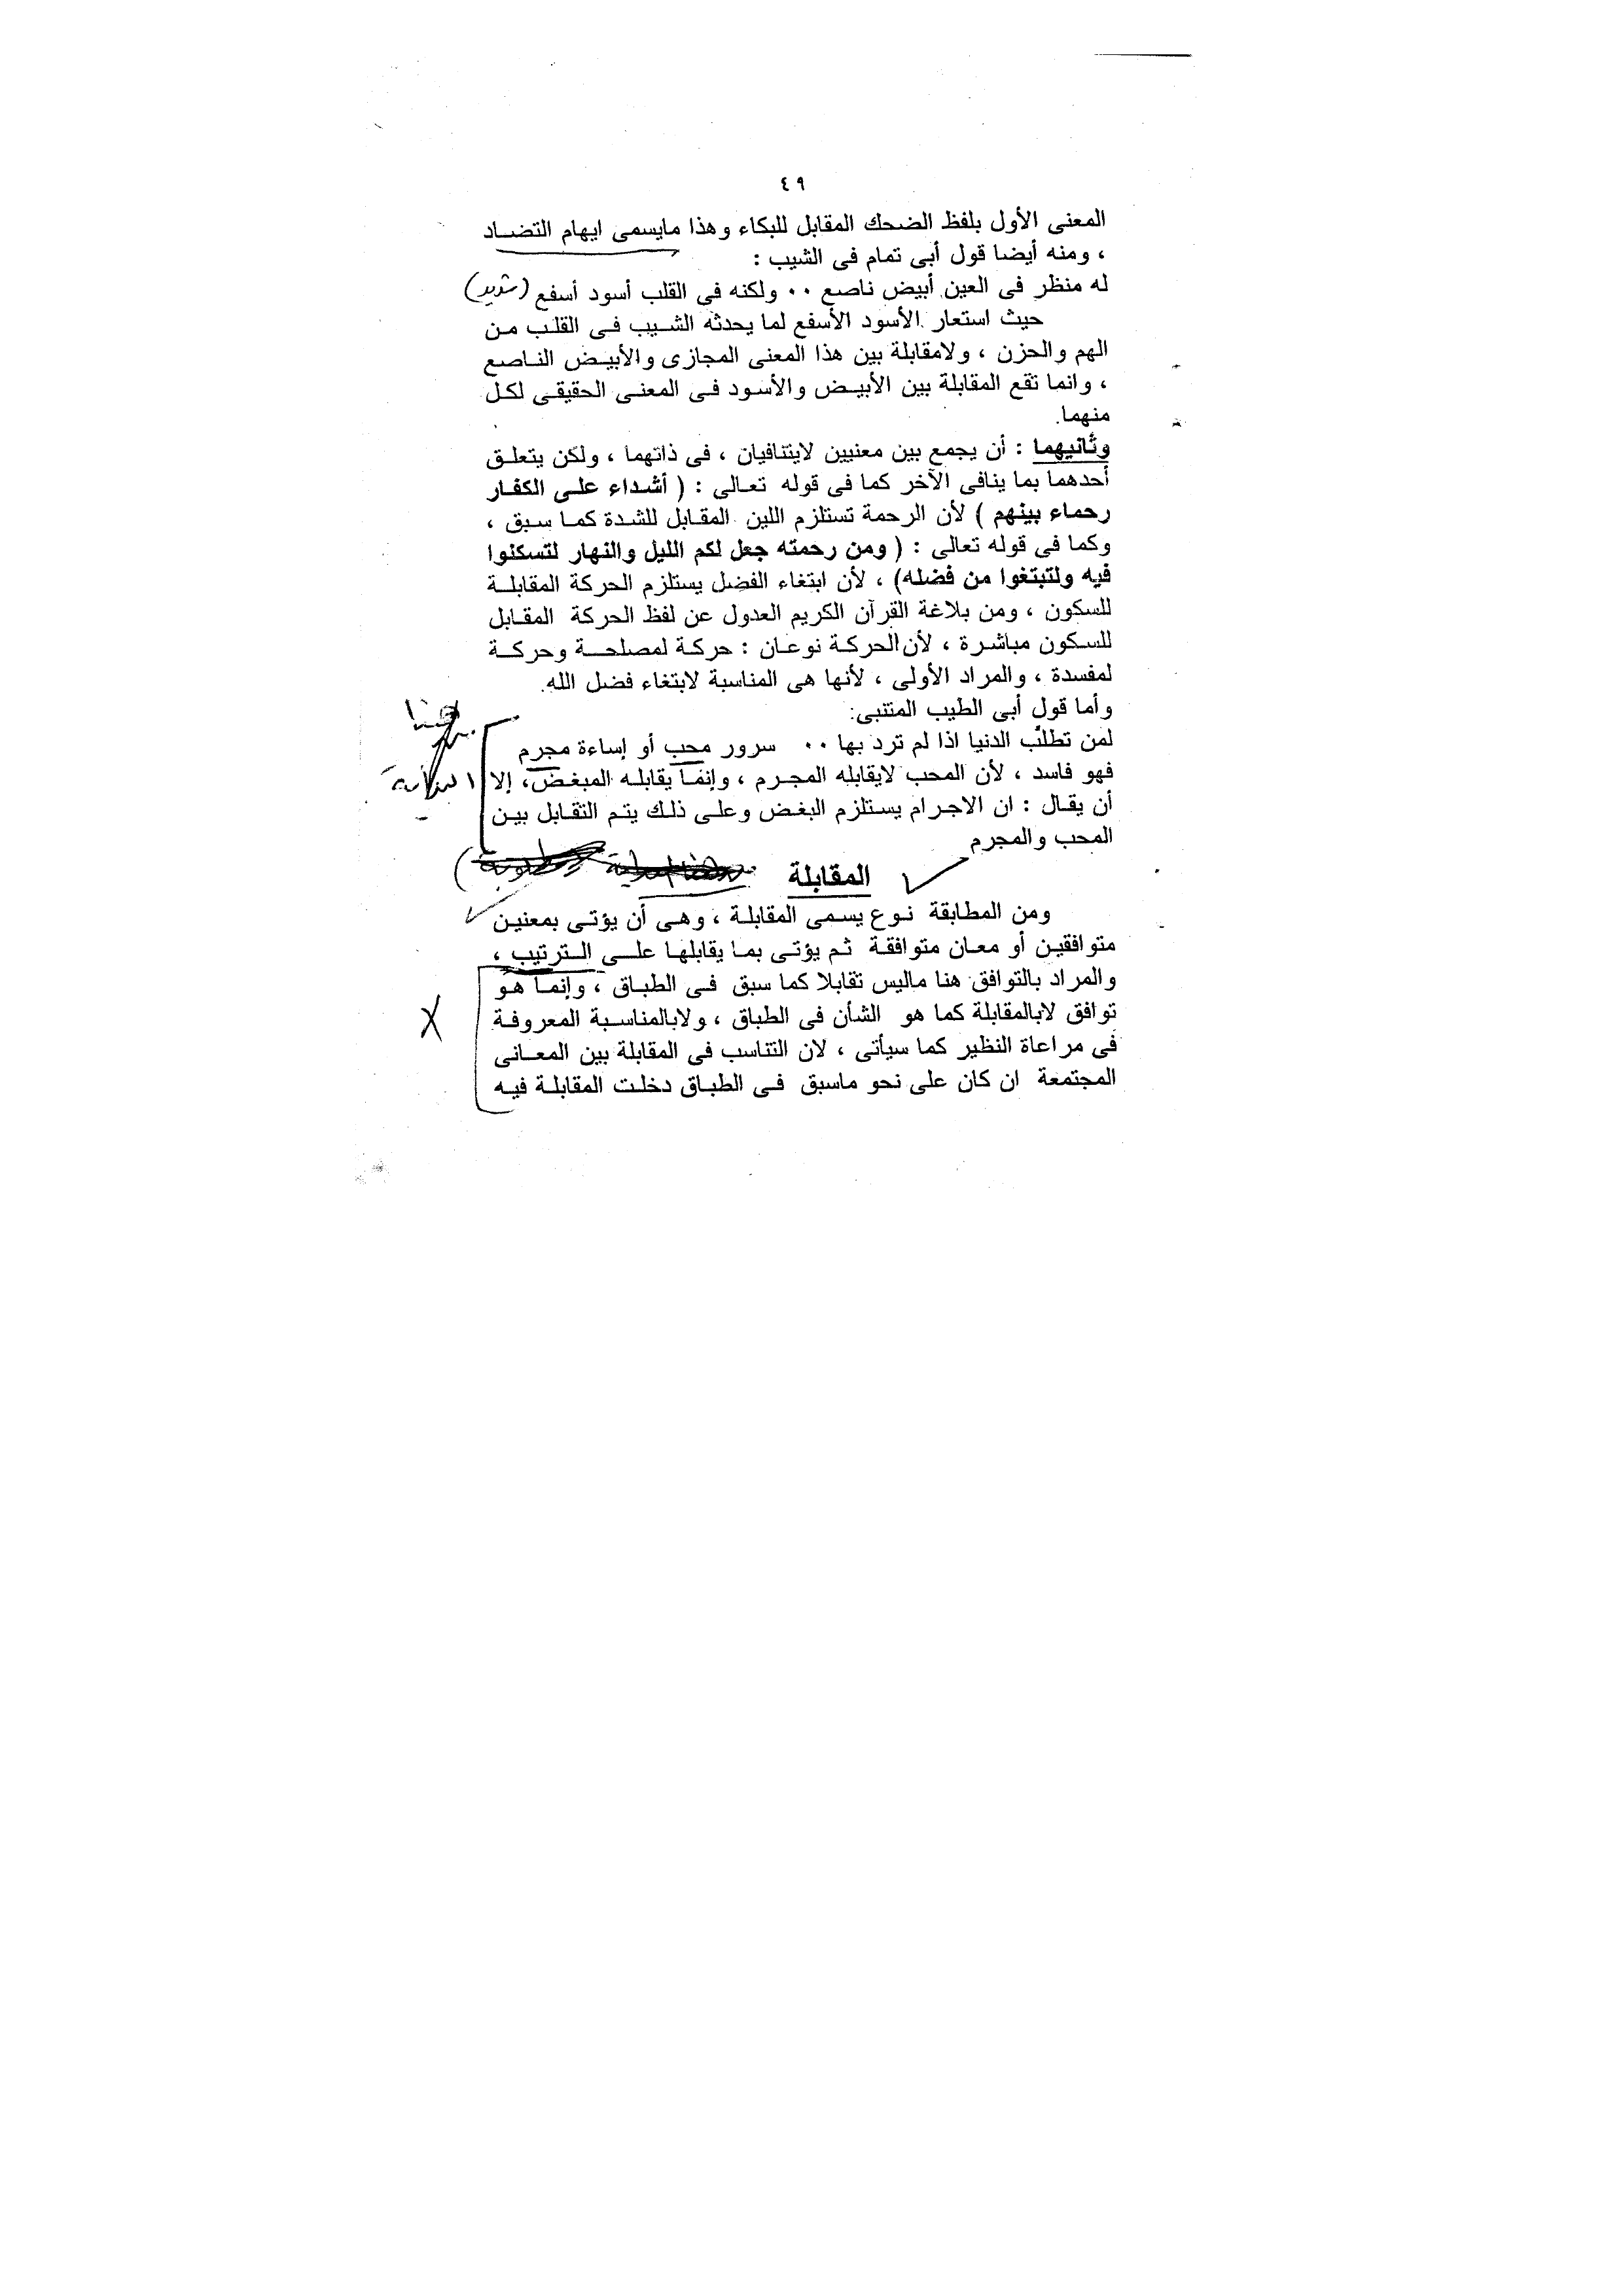 ٤٩
المعنى الأول بلفظ الضحك المقابل للبكاء وهذا مايسمى ايهام التضاد
، ومنه أيضا قول أبى تمام فى الشيب :
له منظر فى العين أبيض ناصع ٠٠ ولكنه فى القلب أسود أسفع (شديد)
حيث استعار الأسود الأسفع لما يحدثه الشيب فى القلب من
الهم والحزن ، ولامقابلة بين هذا المعنى المجازى والأبيض الناصع
، وانما تقع المقابلة بين الأبيض والأسود فى المعنى الحقيقى لكل
منهما.
وثانيهما : أن يجمع بين معنيين لايتنافيان ، فى ذاتهما ، ولكن يتعلق
أحدهما بما ينافى الآخر كما فى قوله تعالى : ( أشداء على الكفار
رحماء بينهم ) لأن الرحمة تستلزم اللين المقابل للشدة كما سبق ،
وكما فى قوله تعالى : ( ومن رحمته جعل لكم الليل والنهار لتسكنوا
فيه ولتبتغوا من فضله) ، لأن ابتغاء الفضل يستلزم الحركة المقابلة
للسكون ، ومن بلاغة القرآن الكريم العدول عن لفظ الحركة المقابل
للسكون مباشرة ، لأن الحركة نوعان : حركة لمصلحة وحركة
لمفسدة ، والمراد الأولى ، لأنها هى المناسبة لابتغاء فضل الله.
وأما قول أبى الطيب المتنبى:
لمن تطلب الدنيا اذا لم ترد بها ٠٠ سرور محب أو إساءة مجرم
فهو فاسد ، لأن المحب لايقابله المجرم ، وإنما يقابله المبغض، إلا
أن يقال : ان الاجرام يستلزم البغض وعلى ذلك يتم التقابل بين
المحب والمجرم
المقابلة
ومن المطابقة نوع يسمى المقابلة ، وهى أن يؤتى بمعنين
متوافقين أو معان متوافقة ثم يؤتى بما يقابلها على الترتيب ،
والمراد بالتوافق هنا ماليس تقابلا كما سبق فى الطباق ، وإنما هو
توافق لابالمقابلة كما هو الشأن فى الطباق ، ولابالمناسبة المعروفة
فى مراعاة النظير كما سيأتى ، لان التناسب فى المقابلة بين المعانى
المجتمعة ان كان على نحو ماسبق فى الطباق دخلت المقابلة فيه